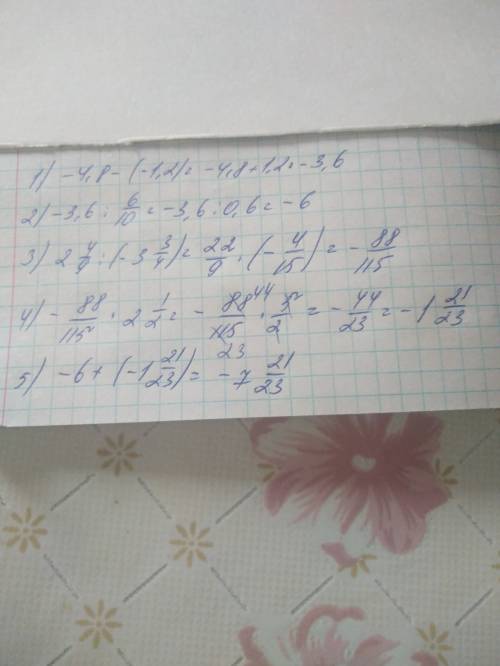 1) -4,8 - (-1,2) = -4,8 + 1,2 = -3,6
2) -3,6 : 6/10 = -3,6 : 0,6 = -6
3) 2 4/9 : (-3 3/4) = 22/9 · (-4/15) = -88/115
4) -88/115 · 2 1/2 = -88 44/115 23 · 5/2 = -44/23 = -1 21/23
5) -6 + (-1 21/23) = -7 21/23